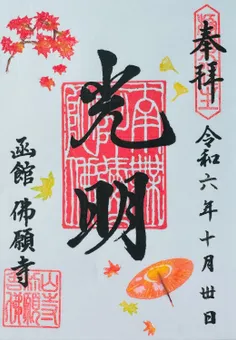 奉拝
令和六年十月卅日
光明
函館 佛願寺